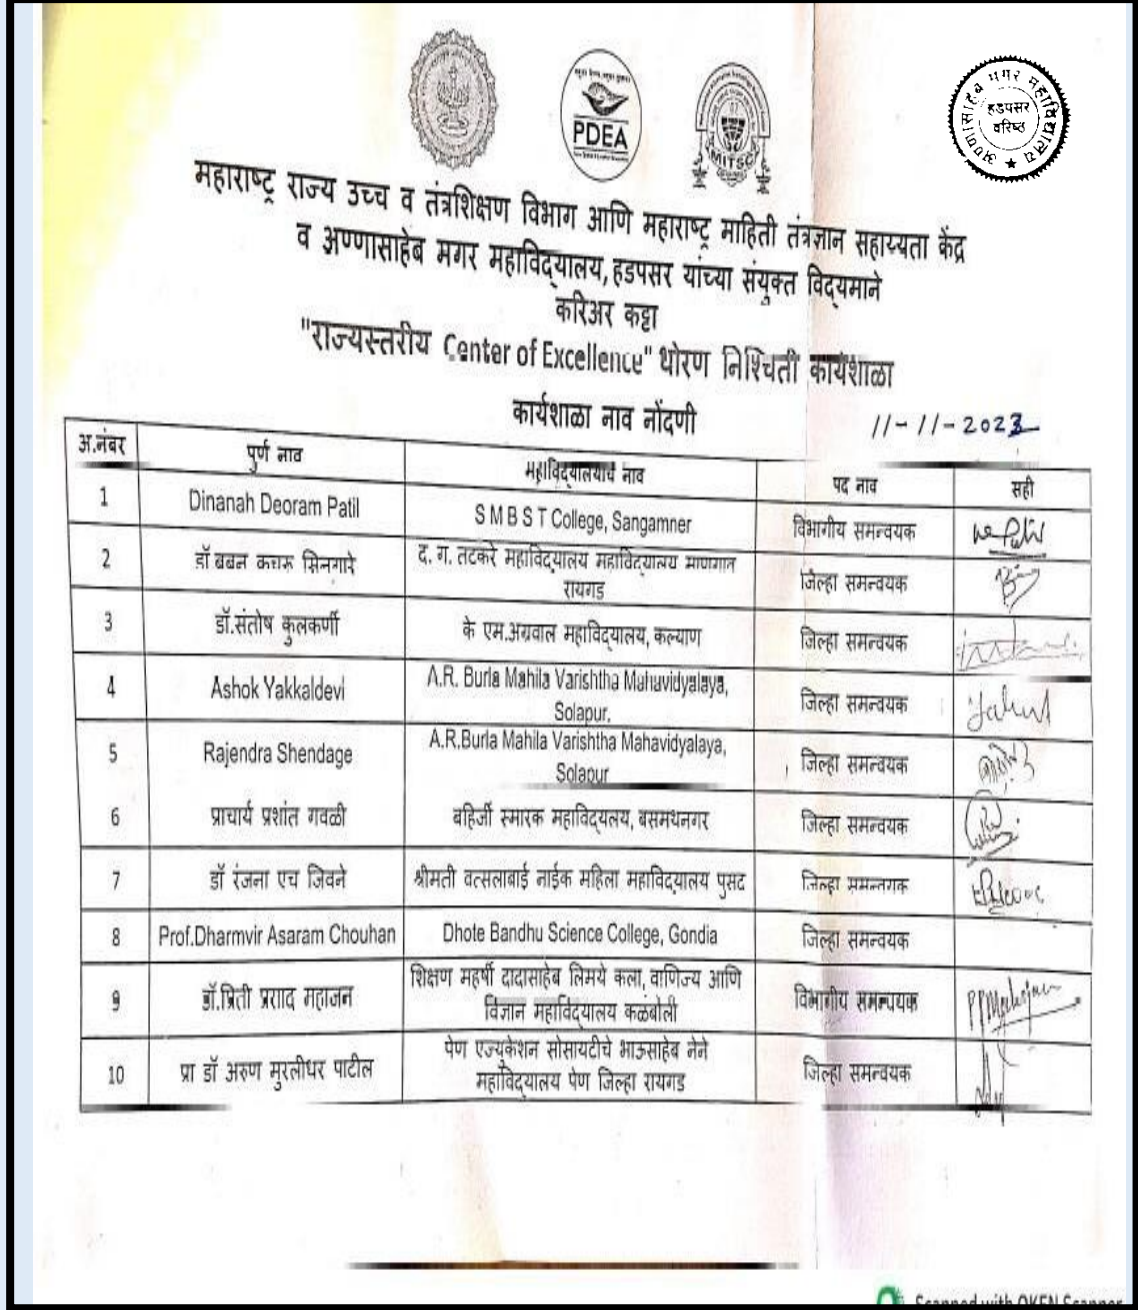 PDEA
MITSC
अण्णासाहेब मगर महाविद्यालय
हडपसर
वरिष्ठ
महाराष्ट्र राज्य उच्च व तंत्रशिक्षण विभाग आणि महाराष्ट्र माहिती तंत्रज्ञान सहाय्यता केंद्र
व अण्णासाहेब मगर महाविद्यालय, हडपसर यांच्या संयुक्त विद्यमाने
करिअर कट्टा
"राज्यस्तरीय Center of Excellence" धोरण निश्चिती कार्यशाळा
कार्यशाळा नाव नोंदणी
11-11-2023
अ.नंबर पुर्ण नाव महाविद्यालयाचे नाव पद नाव सही
1 Dinanah Deoram Patil S M B S T College, Sangamner विभागीय समन्वयक
2 डॉ बबन कचरू सिनगारे द. ग. तटकरे महाविद्यालय महाविद्यालय माणगाव
रायगड जिल्हा समन्वयक
3 डॉ.संतोष कुलकर्णी के एम.अग्रवाल महाविद्यालय, कल्याण जिल्हा समन्वयक
4 Ashok Yakkaldevi A.R. Burla Mahila Varishtha Mahavidyalaya,
Solapur, जिल्हा समन्वयक
5 Rajendra Shendage A.R.Burla Mahila Varishtha Mahavidyalaya,
Solapur जिल्हा समन्वयक
6 प्राचार्य प्रशांत गवळी बहिर्जी स्मारक महाविद्यलय, बसमथनगर जिल्हा समन्वयक
7 डॉ रंजना एच जिवने श्रीमती वत्सलाबाई नाईक महिला महाविद्यालय पुसद जिल्हा समन्वयक
8 Prof.Dharmvir Asaram Chouhan Dhote Bandhu Science College, Gondia जिल्हा समन्वयक
9 डॉ.प्रिती प्रसाद महाजन शिक्षण महर्षी दादासाहेब लिमये कला, वाणिज्य आणि
विज्ञान महाविद्यालय कळंबोली विभागीय समन्वयक
10 प्रा डॉ अरुण मुरलीधर पाटील पेण एज्युकेशन सोसायटीचे भाऊसाहेब नेने
महाविद्यालय पेण जिल्हा रायगड जिल्हा समन्वयक
Scanned with OKEN Scanner